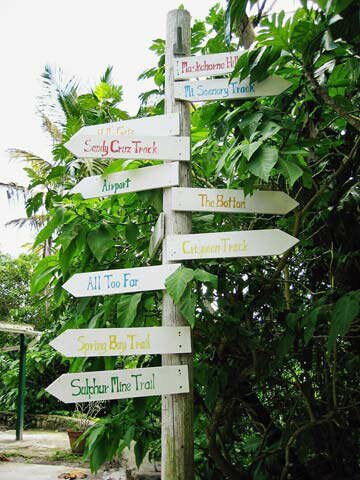 Maskehorne Hill
Mt Scenery Track
Gate
Sandy Cruz Track
Airport
The Bottom
Crispeen Track
All Too Far
Spring Bay Trail
Sulphur Mine Trail